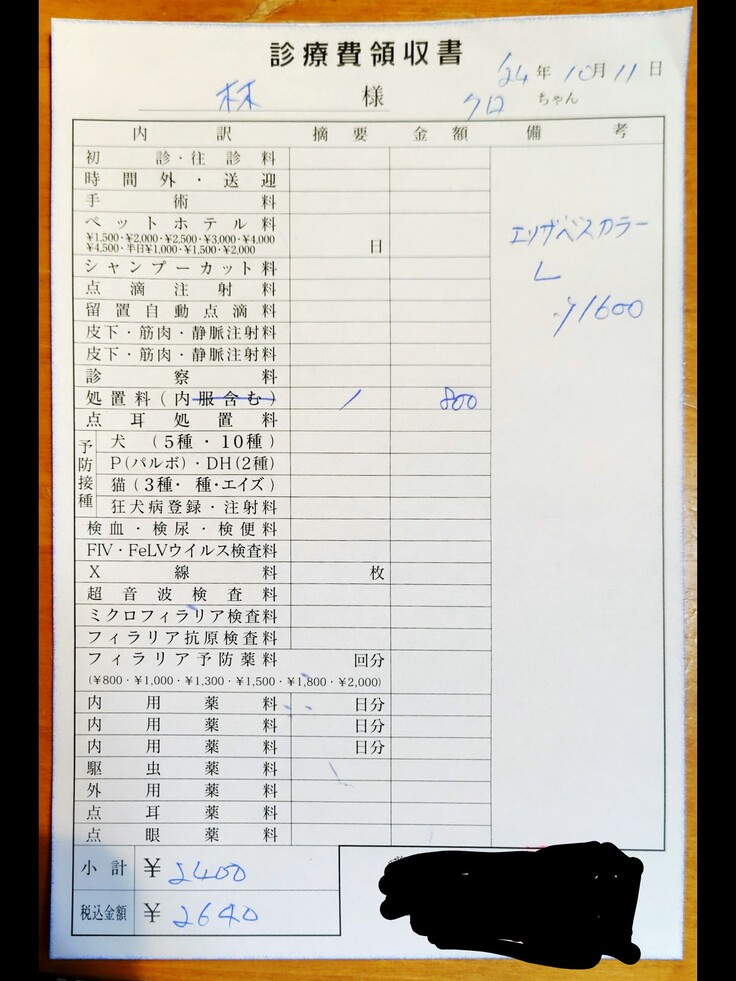 診療費領収書
'24年10月11日
林 様 クロ ちゃん
内訳 摘要 金額 備考
初診・往診料
時間外・送迎
手術料
ペットホテル料
¥1,500・¥2,000・¥2,500・¥3,000・¥4,000
¥4,500・半日¥1,000・¥1,500・¥2,000 日
シャンプーカット料
点滴注射料
留置自動点滴料
皮下・筋肉・静脈注射料
皮下・筋肉・静脈注射料
診察料
処置料(内服含む) 1 800
点耳処置料
予防接種
犬(5種・10種)
P(パルボ)・DH(2種)
猫(3種・ 種・エイズ)
狂犬病登録・注射料
検血・検尿・検便料
FIV・FeLVウイルス検査料
X線料 枚
超音波検査料
ミクロフィラリア検査料
フィラリア抗原検査料
フィラリア予防薬料 回分
(¥800・¥1,000・¥1,300・¥1,500・¥1,800・¥2,000)
内用薬料 日分
内用薬料 日分
内用薬料 日分
駆虫薬料
外用薬料
点耳薬料
点眼薬料
エリザベスカラー
L
¥1600
小計 ¥ 2400
税込金額 ¥ 2640